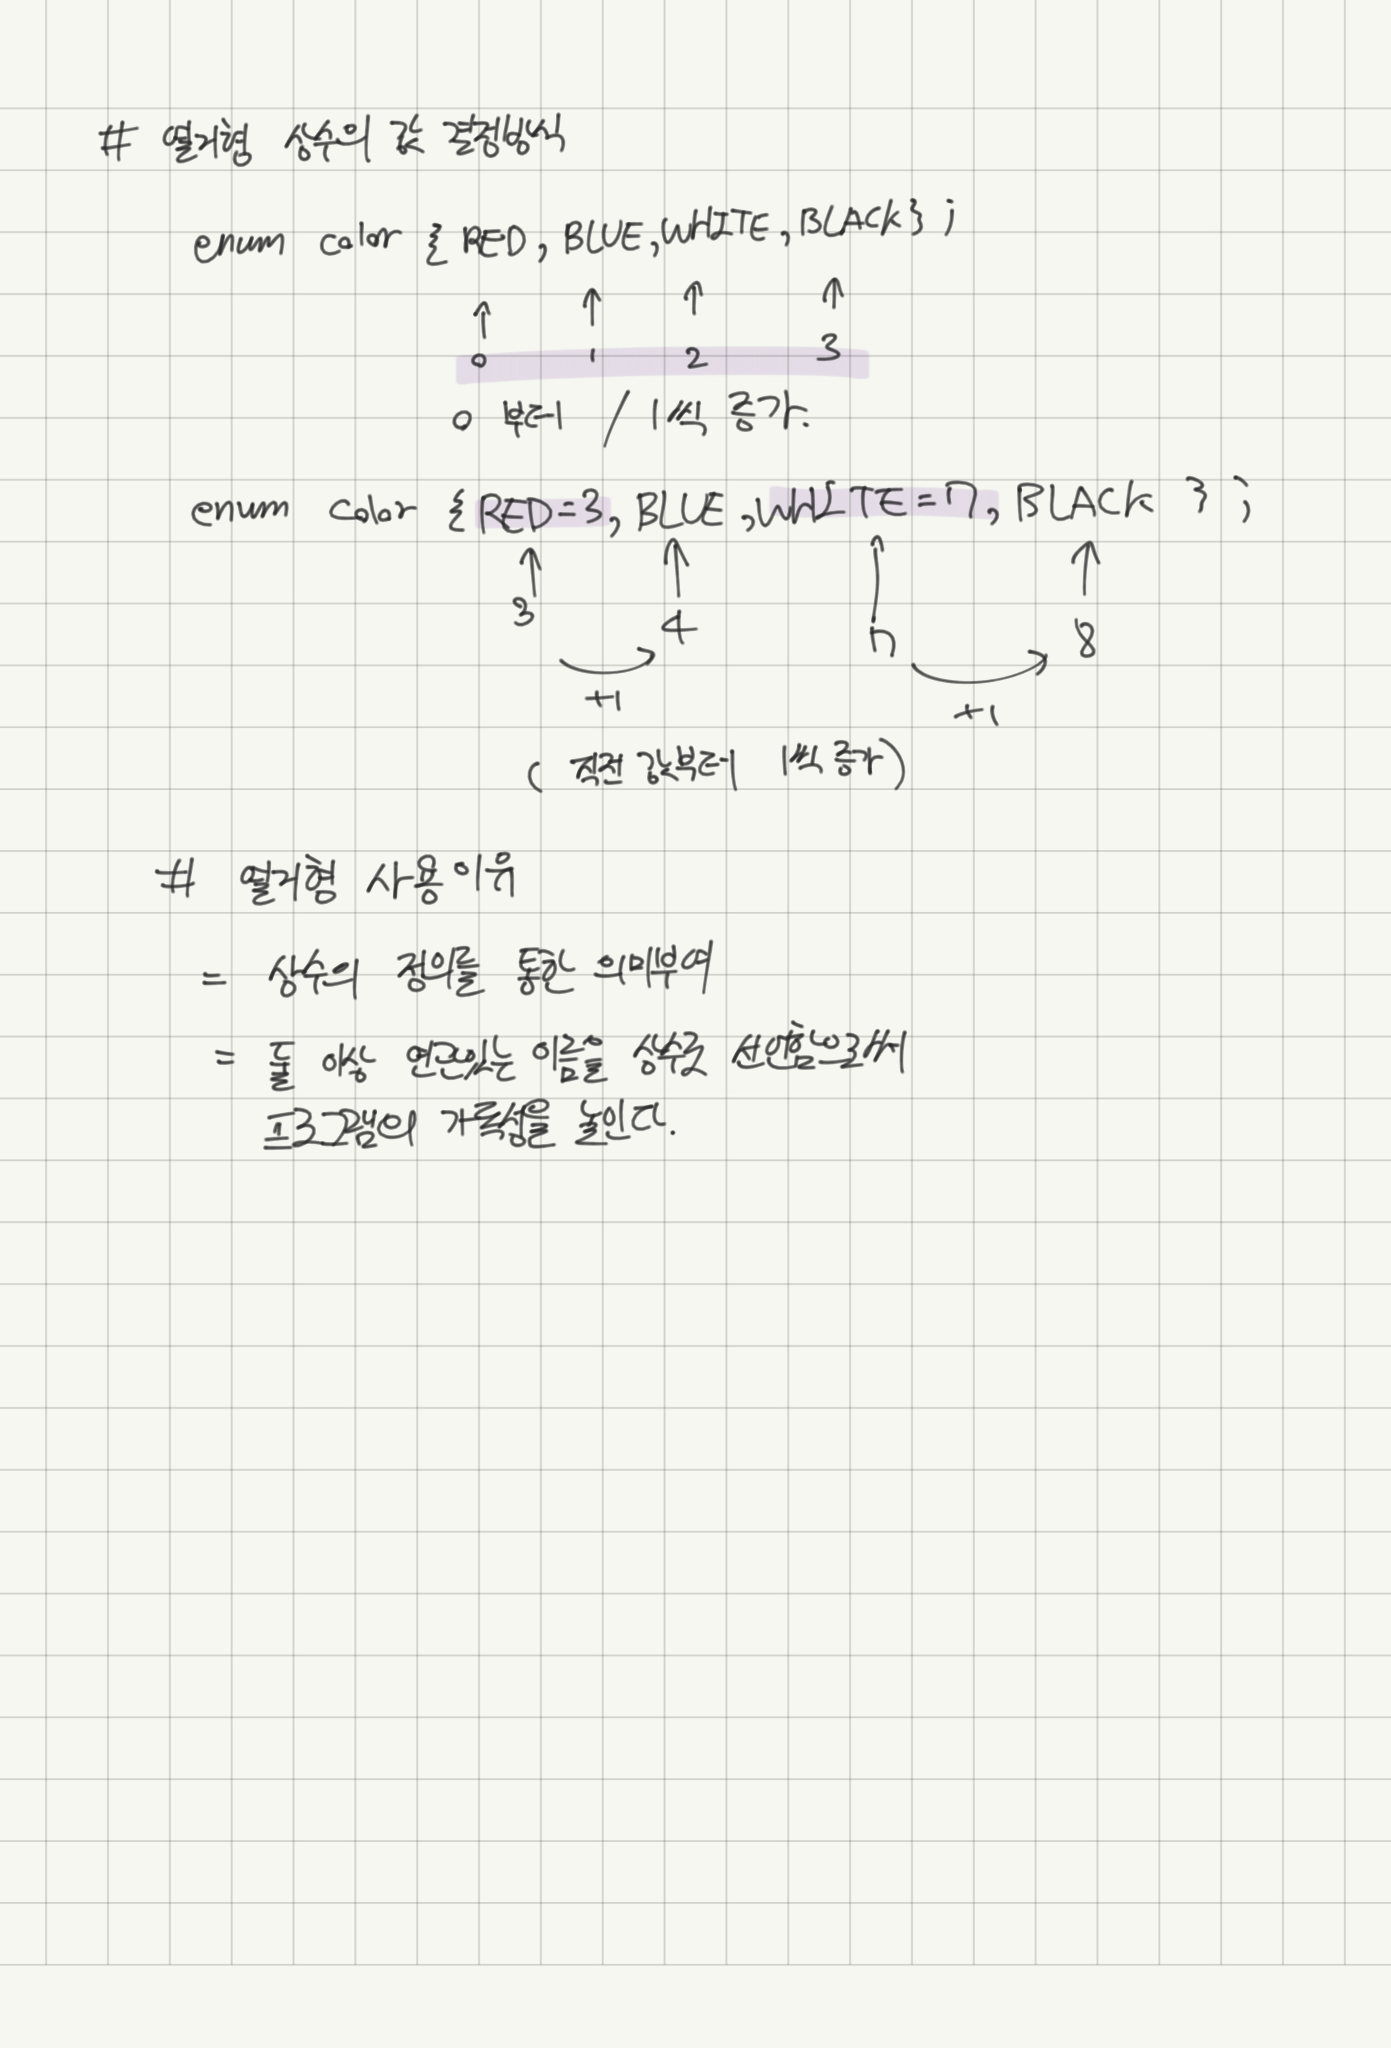 # 열거형 상수의 값 결정방식
enum color { RED, BLUE, WHITE, BLACK } ;
↑ ↑ ↑ ↑
0 1 2 3
0 부터 / 1씩 증가.
enum color { RED=3, BLUE, WHITE=7, BLACK } ;
↑ ↑ ↑ ↑
3 4 7 8
+1 +1
( 직전 값부터 1씩 증가)
# 열거형 사용이유
= 상수의 정의를 통한 의미부여
= 둘 이상 연관있는 이름을 상수로 선언함으로써
프로그램의 가독성을 높인다.